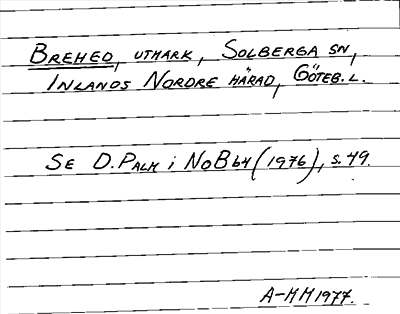 BREHED, UTMARK, SOLBERGA SN,
INLANDS NORDRE HÄRAD, GÖTEB.L.
SE D. PALM i NoB 64 (1976), s. 49.
A-MM 1977.